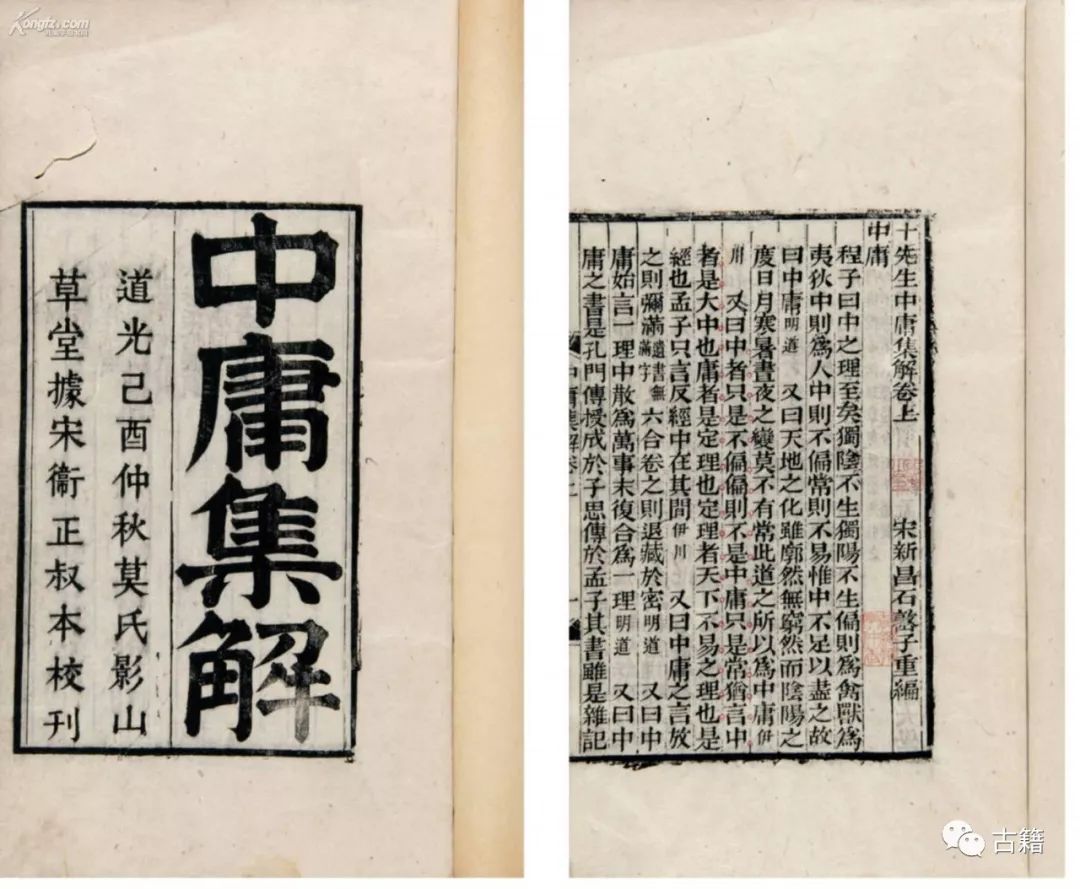 Kongfz.com
中庸集解
道光己酉仲秋莫氏影山
草堂據宋衞正叔本校刊
十先生中庸集解卷上 宋新昌石𡼖子重編
中庸
程子曰中之理至矣獨陰不生獨陽不生偏則爲禽獸爲
夷狄中則爲人中則不偏常則不易惟中不足以盡之故
曰中庸明道 又曰天地之化雖廓然無窮然而陰陽之
度日月寒暑晝夜之變莫不有常此道之所以爲中庸伊
川 又曰中者只是不偏偏則不是中庸只是常猶言中
者是大中也庸者是定理也定理者天下不易之理也是
經也孟子只言反經中在其間伊川 又曰中庸之言放
之則彌滿遺書無滿字六合卷之則退藏於密明道 又曰中
庸始言一理中散爲萬事末復合爲一理明道 又曰中
庸之書是孔門傳授成於子思傳於孟子其書雖是雜記
古籍